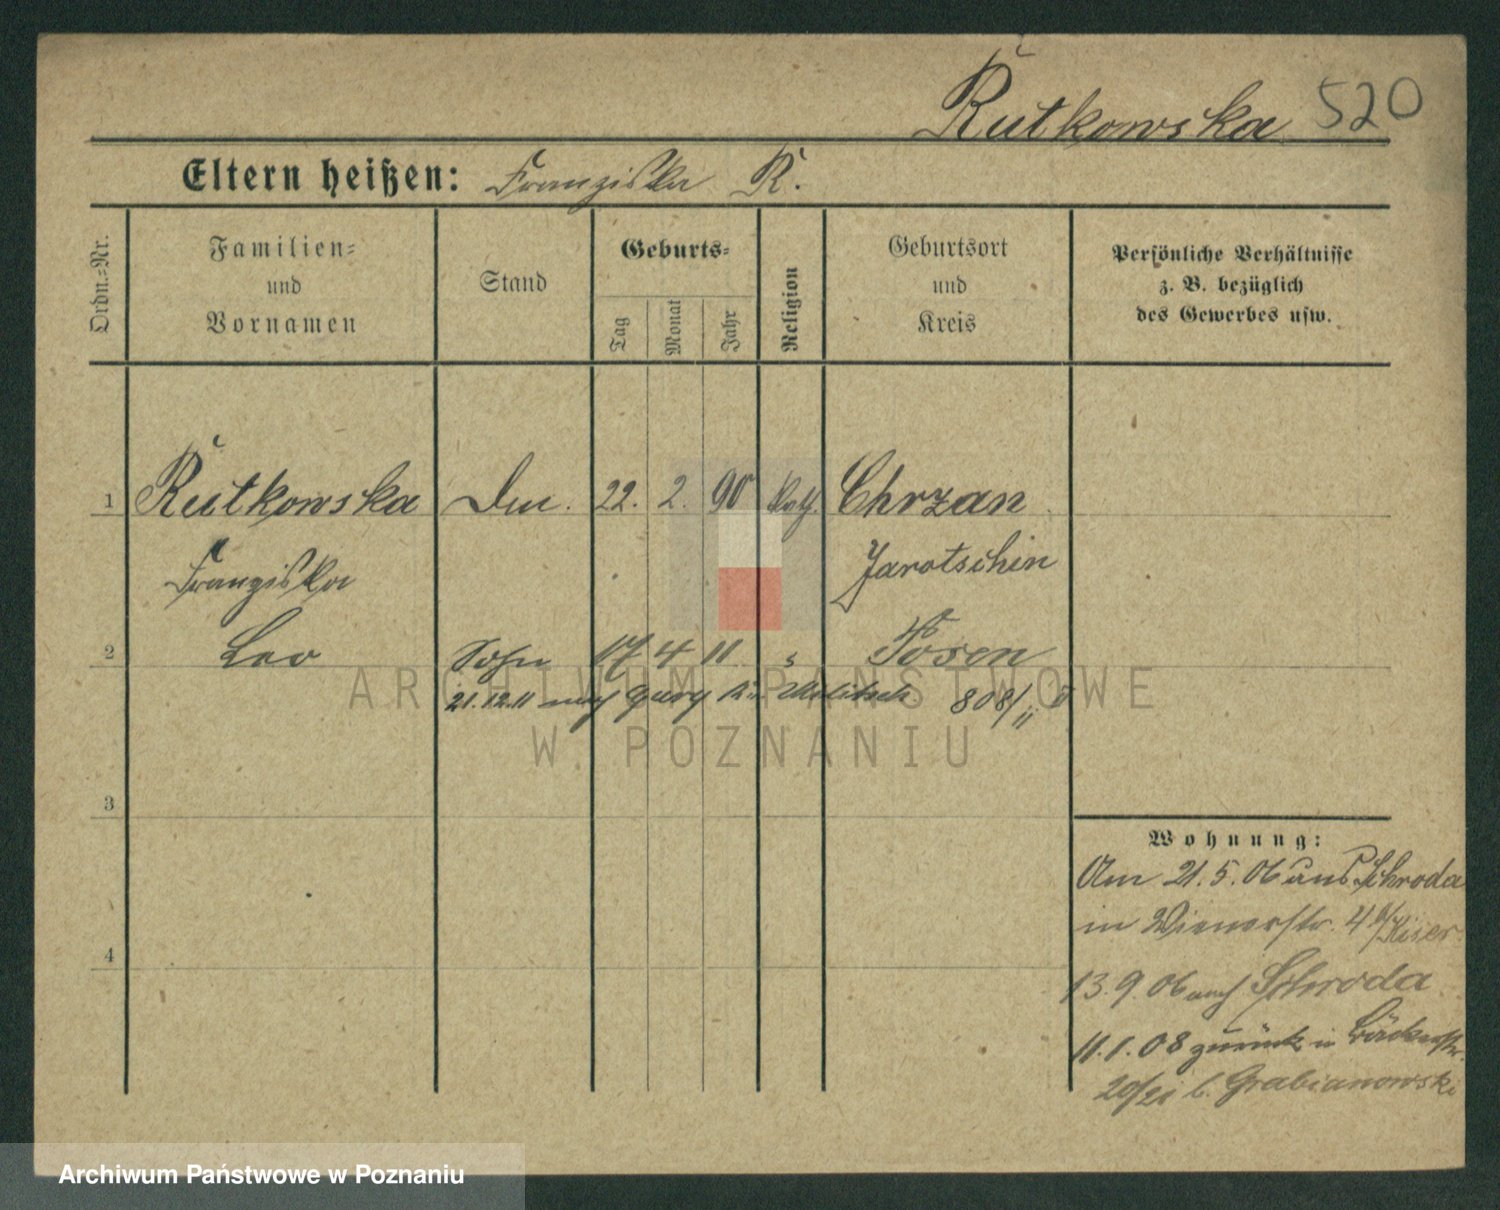 Rutkowska 520
Eltern heißen: Franziska R.
Ordn.=Nr.
Familien=
und
Vornamen
Stand
Geburts=
Tag
Monat
Jahr
Religion
Geburtsort
und
Kreis
Persönliche Verhältnisse
z. B. bezüglich
des Gewerbes usw.
1 Rutkowska 22. 2. 90 kath. Chrzan
Franziska Jarotschin
2 Leo Sohn 17 4 11 " Posen
21.12.11 nach 808/11
3
4
Wohnung:
Am 21.5.06 aus Schroda
in Wienerstr. 4
13.9.06 nach Schroda
11.1.08 zurück in Bäckerstr.
20/21 b. Grabianowski
ARCHIWUM PAŃSTWOWE
W POZNANIU
Archiwum Państwowe w Poznaniu